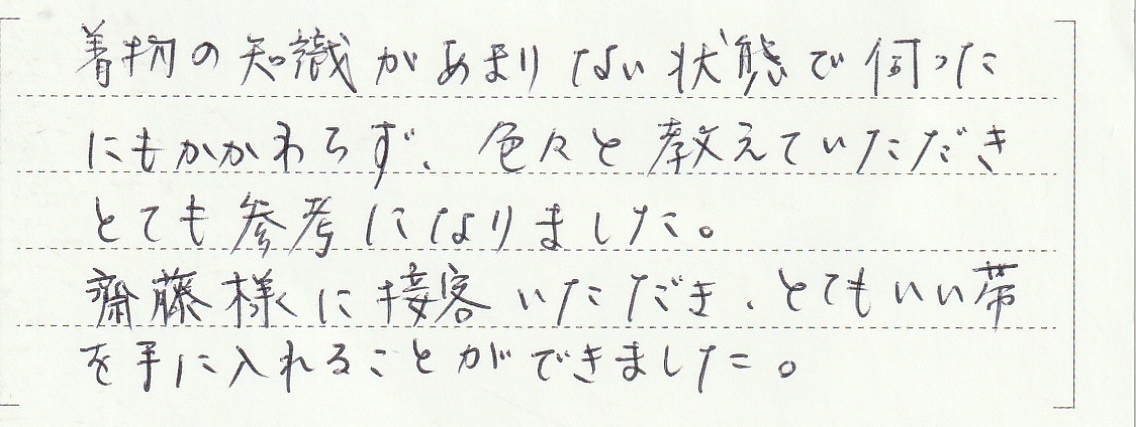 着物の知識があまりない状態で伺った
にもかかわらず、色々と教えていただき
とても参考になりました。
齋藤様に接客いただき、とてもいい帯
を手に入れることができました。